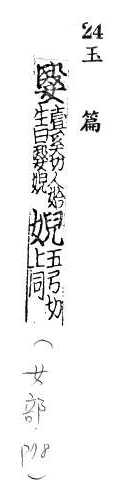 24 玉篇
嫛
壹奚切人始
生曰嫛婗
婗
五兮切
上同
（女部